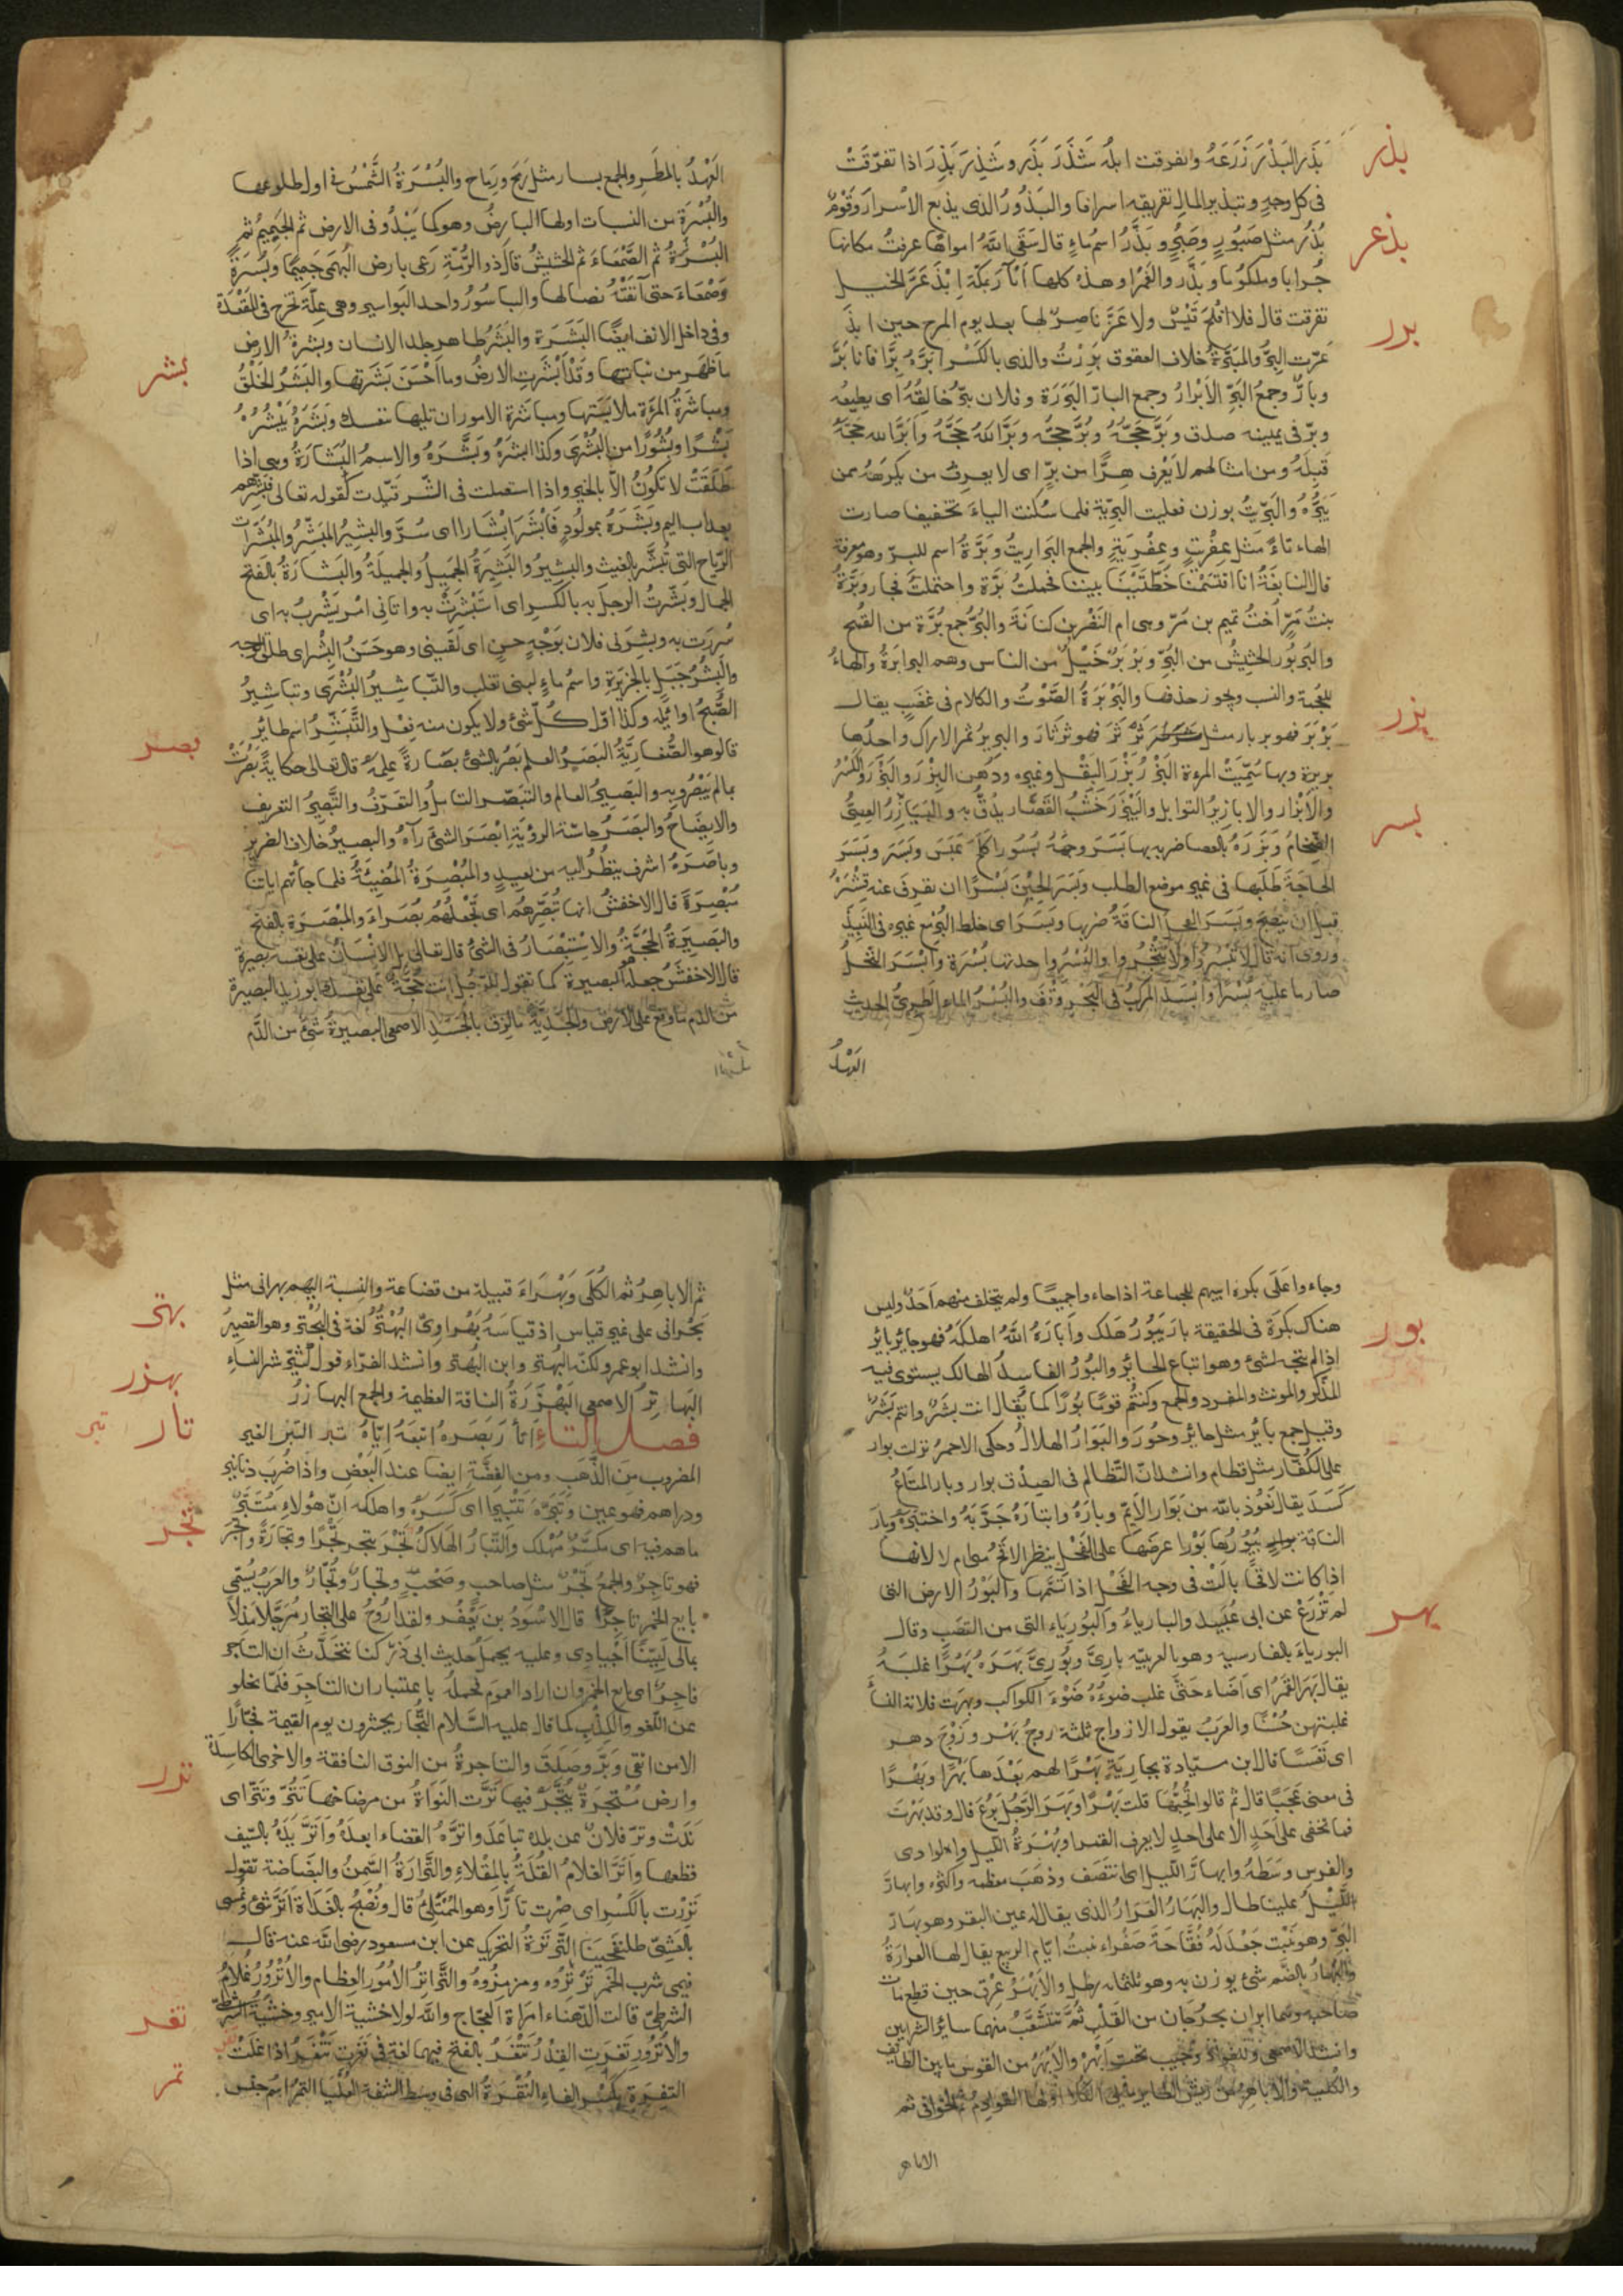 بذر
بَذَرَ البَذْرَ زَرَعَهُ وتفرقت ابله شَذَرَ بَذَرَ وشِذِرَ بِذِرَ اذا تفرّقَتْ
فى كل وجهٍ وتبذير المال تفريقه اسرافا والبَذُورُ الذى يذيع الاسرار وقَوْمٌ
بُذُر مثل صَبُورٍ وصُبُرٍ وبَذَّرُ اسمُ ماءٍ قال سَقَى اللهُ امواهًا عرفتُ مكانها
بذعر
جُرابا وملكومًا وبَذَّر والغَمْرا وهذه كلها آبارٌ بمكّة اِبْذَعَرَّ الخيل
تفرقت قال فلا افْلَحَتْ قَيْسٌ ولا عَزَّ ناصِرٌ لها بعد يوم المرج حين ابذَ
برر
عَرّت البِرُّ والمَبَرّةُ خلاف العقوق بَرِرْتُ والدى بالكَسْر ابَرُّه بِرًّا فانا بَرٌّ
وبارٌّ وجمعُ البَرِّ الأبْرارُ وجمع البارّ البَرَرَة وفلان يبرّ خالِقَهُ اى يطيعه
وبرّ فى يمينه صدق وبَرَّ حَجُّهُ وبُرَّ حجُّه وبَرَّ اللهُ حَجَّهُ وأبَرَّ الله حَجَّهُ
قَبِلَهُ ومن امثالهم لا يَعْرِف هِرًّا من بِرٍّ اى لا يعرِفُ من يكرَهُهُ ممن
يَبَرُّه والبَرِّيتُ بوزن فعليت البرِّيّة فلما سُكنت الياءُ تخفيفا صارت
الهاء تاءً مثل عِفْرِيتٍ وعِفْرِيَةٍ والجمع البَرارِيتُ وبَرَّةُ اسم للبرّ وهو معرفة
قال النابغةُ انا اقتَسَمْنا خُطَّتَيْنا بيننا فحملتُ بَرَّة واحتملتَ فجارِ وبَرَّةُ
بنتُ مُرٍّ اُختُ تميم بن مُرّ وهى ام النَضْر بن كنانَةَ والبُرُّ جمع بُرَّة من القُمح
والبَرْبُور الجَشِيشُ من البُرِّ وبَرْبَرٌ جيلٌ من الناس وهم البرابَرةُ والهاءُ
للعُجمة والنسب ويجوز حذفها والبَرْبَرَةُ الصَّوْتُ والكلام فى غضَبٍ يقال
بَرْبَرَ فهو بربار مثل ثَرْثَرَ فهو ثَرثَارٌ والبرير ثمر الاراك واحدُها
بزر
بريرة وبها سُمِّيَتْ المرءة البَزْرُ بَزْرُ البَقْل وغيره ودُهن البِزْرِ والبَزْرِ والكَسْرُ
والابْزار والابازِيرُ التوابل والبَيْزَرُ خشَبُ القَصَّار يدُقُّ به والبَيَازِرُ العِصِىُّ
بسر
الضِّخامُ وبَزَرَهُ بالعصا ضربه بها بَسَرَ وجهَهُ بُسُورا كَلَحَ عَبَسَ وبَسَرَ وبَسَرَ
الحاجَةَ طَلَبَها فى غير موضع الطلب وبَسَرَ الحِبْنَ بَسْرًا ان يقرفَ عنه قِشْرَهُ
قبل ان ينضِجَ وبَسَرَ الفحلُ الناقةَ ضربها وبَسَرَ اى خلط البُسْرَ مع غيره فى النبيذ
وروى انه قال لا تَبْسُروا ولا تَثْجُروا والبُسْرُ واحدتها بُسْرَة وأبْسَرَ النخلُ
صار ما عليه بُسْرًا وابْسَرَ المركبُ فى البَحْر وقف والبُسْرُ الماء الطَّرِىُّ الحديث
العَهْدِ
العَهْدُ بالمطَرِ والجمع بسار مثل رُمح ورِماح والبُسْرَةُ الشَّمْسُ فى اول طلوعها
والبُسْرَة من النبات اولها البارِضُ وهو كما يَبْدُو فى الارض ثم الجَمِيمُ ثم
البُسْرَةُ ثم الصَّمْعاءُ ثم الحشيشُ قال ذو الرُمّة رعى بارض البُهْمَى جَمِيمًا وبُسْرَةً
وصَمْعاءَ حتى آنَفَتْهُ نصالها والباسُورُ واحد البَواسير وهى عِلّة تخرج فى المَقْعَدة
بشر
وفى داخل الانف ايضًا البَشَرَة والبَشَرُ ظاهر جلد الانسان وبشرةُ الارض
ما ظهَر من نباتِها وقَدْ أبْشَرَت الارضُ وما احْسَنَ بَشَرتها والبَشَرُ الخلْقُ
ومباشرةُ المرءة ملابَسَتها ومباشَرة الامور ان تليها بنفسك وبَشَرَهُ يَبْشُرُهُ
بَشْرًا وبُشُورًا من البُشْرَى وكذا ابشَرَهُ وبَشَّرَهُ والاسمُ البُشارَةُ وهى اذا
طُلِّقَتْ لا تكُونُ الّا بالخير واذا استعملت فى الشّر قيّدت كقوله تعالى فبَشِّرْهم
بعذاب اليم وبَشَرَهُ بمولُودٍ فَأبْشَرَ اِبْشَارا اى سُرَّ والبشيرُ المُبَشِّرُ والمُبَشِّرات
الرّياح التى تُبَشِّر بالغيث والبشيرُ والبَشِيرَةُ الجَميلُ والجميلَةُ والبَشارَةُ بالفتح
الجمالُ وبَشِرتُ الرجلَ به بالكَسر اى استَبْشَرَتْ به واتانى امر يَبْشَرتُ به اى
سُرِرَتُ به وبشرَنى فلان بوَجْهٍ حسنٍ اى لقينى وهو حَسَنُ البِشْر اى طلق الوجه
والبِشْرُ جَبَلٍ بالجزيرة واسمُ ماءٍ لبنى تغلب والتّباشيرُ البُشْرَى وتباشيرُ
الصُّبح اوائلُه وكذا اول كلّ شئ ولا يكون منه فِعْل والتُّبُشِّر اسم طائر
بصر
قالوهو الصُّفارِيّةُ البَصَرُ العلم بَصُرَ بالشئ بَصَارةً عَلِمَهُ قال تعالى حكايةً بَصُرْتُ
بما لم يَبْصُروا به والبَصيرُ العالم والتبَصّر التأمل والتعَرّفُ والتَّبْصيرُ التعريف
والايضاحُ والبَصَرُ حاسّة الرؤية اِبْصَرَ الشئَ رآهُ والبصيرُ خلاف الضرير
وباصَرَهُ اشرف ينظُرُ اليه من بعيدٍ والمُبْصِرَةُ المُضِيئَةُ فلما جاءتهم اياتنا
مُبْصِرَةً قال الاخفشُ انها تُبَصِّرُهُم اى تَجعَلُهُم بُصَراءَ والمَبْصَرَة بالفتح
والبَصيرةُ الحُجَّةُ والاستِبْصَارُ فى الشئ قال تعالى بل الانسانُ على نفسه بصيرة
قال الاخفَشُ جعلَهُ البصيرة كما تقول للرجُل انت حُجَّةٌ على نفسك ابو زيد البصيرة
من الدّم ما وقع على الارضِ والجَدِيّة ما لزِق بالجَسَدِ الاصمعى البصيرةُ شئٌ من الدّم
وجاءوا على بكرة ابيهم للجماعة اذا جاءوا جميعًا ولم يتخلف منهم أحَدٌ وليس
بور
هناك بكَرَة فى الحقيقة بارَ يبُورُ هَلك وأبَارَهُ اللهُ اهلكهُ فهو حائر بائر
اذا لم يتجه لشئ وهو اتباع الحائِرِ والبُورُ الفاسِدُ الهالك يستوى فيه
المذكّر والمونث والمفرد والجمع وكنتُم قومًا بُورًا كما يُقال انت بشرٌ وانتم بَشَرٌ
وقيل جمع بائر مثل حائر وحُور والبَوَارُ الهلاك وحكى الاحمر نزلت بوارِ
على الكُفّار مثل قطام وانشد انّ التّظالم فى الصديق بوار وبارَ المتاعُ
كسَدَ يقال نَعُوذ بالله من بَوَار الايِّم وبارَهُ وابتارَهُ جَرَّبَهُ واختبرَهُ وبارَ
الناقة يَبُورُها بَوْرًا عرضها على الفَحْل ينظر الاقحٌ هى ام لا لانها
اذا كانت لاقِحًا بالَتْ فى وجه الفَحْل اذا تشَمَّمَها والبَوْرُ الارض التى
لم تُزْرَعْ عن ابى عُبَيْدٍ والبارياءُ والبُورياء التى من القصَب وقال
بهر
البورياءُ بالفارسية وهو بالعربيّه بارِىٌّ وبُورِىٌّ بَهَرَهُ بَهْرًا غلَبَهُ
يقال بَهَرَ القَمَرُ اى اضَاءَ حتَّى غلب ضوءُهُ ضَوْءَ الكواكب وبهَرَت فلانة النساءَ
غلبتهن حُسْنًا والعَربُ يقول الازواج ثلثة زوجُ بَهْر وزوْجُ دهر
اى تَعَسًا قال ابن ميّادة بجارِيَةٍ بَهْرًا لهم بَعْدَها بَهْرًا وبَهْرًا
فى معنى عَجَبًا قال ثم قالوا تُحِبُّها قلت بَهْرًا وبَهَرَ الرّجُل بَرُعَ قال وقد بَهَرْتَ
فما تخفى على أحَدٍ الا على احدٍ لا يعرف القمرا وبُهْرَةُ الليل والوادى
والفرس وسَطُهُ وابهارَّ الليل اى انتصَف وذهَبَ معظمه واكثره وابهارّ
الليلُ علينا طال والبَهارُ العَرَارُ الذى يقال له عين البقر وهو بهار
البَرِّ وهو نَبْت جَعْدٌ لَهُ فُقَّاحَةٌ صَفْراء ينبتُ ايّام الربيع يقال لها العرارَةُ
والبُهارُ بالضّم شئ يوزن به وهو ثلثمائه رطل والأَبْهَرُ عِرقٌ حين قطع مات
صاحبه وهما ابهران يخرُجَان من القَلْب ثم تتشَعَّبُ منهما سائر الشرايين
وانشد الاصمعى وللفُوادِ وجيب تحت أبْهَره والابْهَرُ من القوس ما بين الطائف
والكلية والأباهِرُ من ريش الطاير ما يلى الكُلَا اولها القوادِمُ ثم الخوافى ثم
الاباهر
ثم الاباهِرُ ثم الكُلَى وبَهْراءَ قبيلة من قضاعة والنسبة اليهم بهرانى مثل
بهتر
بَحْرانى على غير قياس اذ قياسَهُ بَهْراوىٌّ البُهْتُرُ لُغة فى البُحْتُر وهو القصيرُ
وانشد ابو عمرو لكنّه البُهتر وابن البُهتر وانشد الفرّاء قول كُثَيِّر شر النساء
بهزر
البَهاتِرُ الاصمعى البَهْزَرَةُ الناقة العظيمة والجمع البهازرُ
تار
تبر
فصل التاء أتأرَ بَصَرَهُ اتبعَهُ ايّاهُ تبر التبر الغير
المضروب من الذَّهَبِ ومن الفِضَّة ايضا عند البَعْض واذا ضُرِبَ دنانير
ودراهم فهو عين وتَبَّرَهُ تَتْبِيرًا اى كسَّرَهُ واهلكه انّ هؤلاءِ مُتَبَّرٌ
تجر
ما هم فيه اى مكَسَّرٌ مُهْلك والتَّبَارُ الهلاكُ تَجَرَ يتجر تَجْرًا وتجارةً واتجَرَ
فهو تاجِرٌ والجمعُ تَجْرٌ مثل صاحب وصَحْبٍ وتجارٌ وتُجَّارٌ والعَربُ يُسَمّى
بايع الخمر تاجِرًا قال الاسْوَدُ بن يَعْفُر ولقد أرُوحُ على التِجار مُرَجَّلًا مَذِلًا
بمالى لَيِّنًا أجْيادِى وعليه يحمل حديث ابى ذرٍّ كنا نتحدَّثُ ان التاجر
فاجِرٌ اى بايع الخمر وان اراد العموم فحمله باعتبار ان التاجِرَ قلّما يخلو
عن اللَّغو والكذْبِ كما قال عليه السَّلام التُّجار يحشرون يوم القيمة فجّارًا
الا من اتقى وبَرَّ وصَدَقَ والتاجرةُ من النوق النافقة والاخرى الكاسِدَة
ترر
وارض مُتْجَرَةٌ يُتَّجَرُ فيها تَرَّت النَوَاةُ من مرضاخها تَتُرّ وتَتِرّ اى
نَدَتْ وترّ فلانٌ عن بلده تباعَدَ واترَّهُ القضاء ابعدَهُ واتَرَّ يَدَهُ بالسّيف
قطعها واتَرَّ الغلامُ القُلَةَ بالمِقْلاءِ والتَّرارَةُ السّمنُ والبَضَاضة تقول
تَرِرْت بالكَسْر اى صِرْت تارًّا وهو الممْتَلِئُ قال ونُصْبِحُ بالغَداة أتَرَّ شئ ونُمْسى
بالعَشِىِّ طلنفَحينا التَّرتَرَةُ التحريك عن ابن مسعود رضى الله عنه قال
فيمن شرب الخمر تَرْتِرُوه ومزمِزُوهُ والتَّراتِرُ الأمُورُ العِظام والأترُورُ غُلامُ
الشرطىّ قالت الدّهناء امراة العجاج واللهِ لولا خشية الامير وخشية الشرطىّ
تغر
والاترُورِ تَغَرَتِ القِدْرُ تَتْغَرُ بالفتح فيهما لغة فى نَغَرت تنْغَرُ اذا غلَتْ
تمر
التفِرَة بكسْر الفاء النُقْرَةُ التى فى وسط الشفة العُلْيا التمرُ اسم جنس